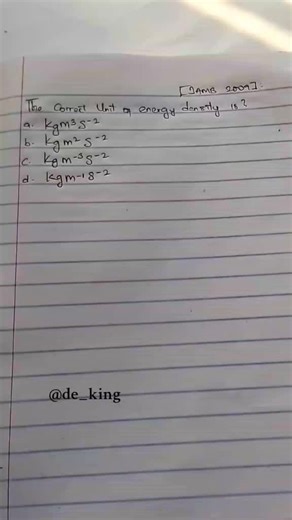 [JAMB 2009].
The Correct Unit of energy density is?
a. kgm³s⁻²
b. kgm² s⁻²
c. kgm⁻³s⁻²
d. kgm⁻¹s⁻²
@de_king